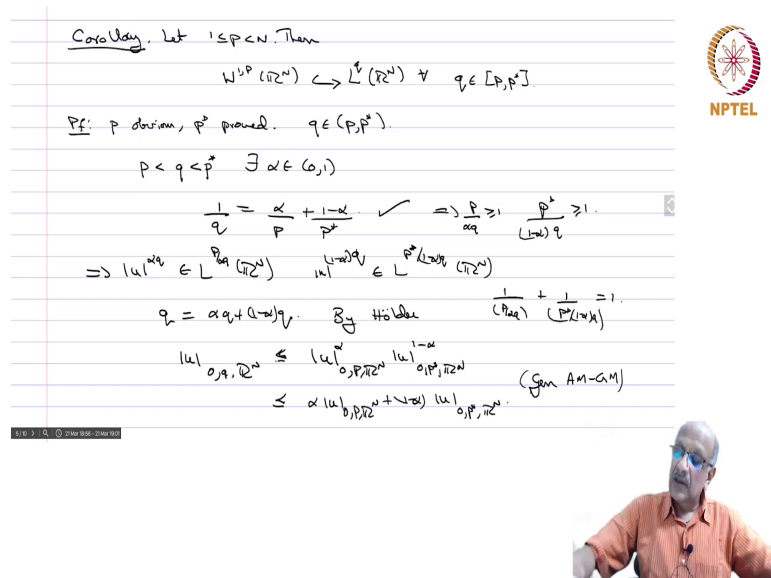 Corollary. Let 1 ≤ p < N. Then
W^{1,p}(ℝ^N) ↪ L^q(ℝ^N) ∀ q ∈ [p, p*].
Pf: p obvious, p* proved. q ∈ (p, p*).
p < q < p* ∃ α ∈ (0,1)
1/q = α/p + (1-α)/p* ✓ ⇒ p/(αq) ≥ 1, p*/((1-α)q) ≥ 1.
⇒ |u|^{αq} ∈ L^{p/αq}(ℝ^N) |u|^{(1-α)q} ∈ L^{p*/(1-α)q}(ℝ^N)
q = αq + (1-α)q. By Hölder 1/(p/αq) + 1/(p*/(1-α)q) = 1.
|u|_{0,q,ℝ^N} ≤ |u|^α_{0,p,ℝ^N} |u|^{1-α}_{0,p*,ℝ^N}
≤ α|u|_{0,p,ℝ^N} + (1-α) |u|_{0,p*,ℝ^N}. (Gen AM-GM)
NPTEL
5 / 10 21 Mar 18:56 - 21 Mar 19:01